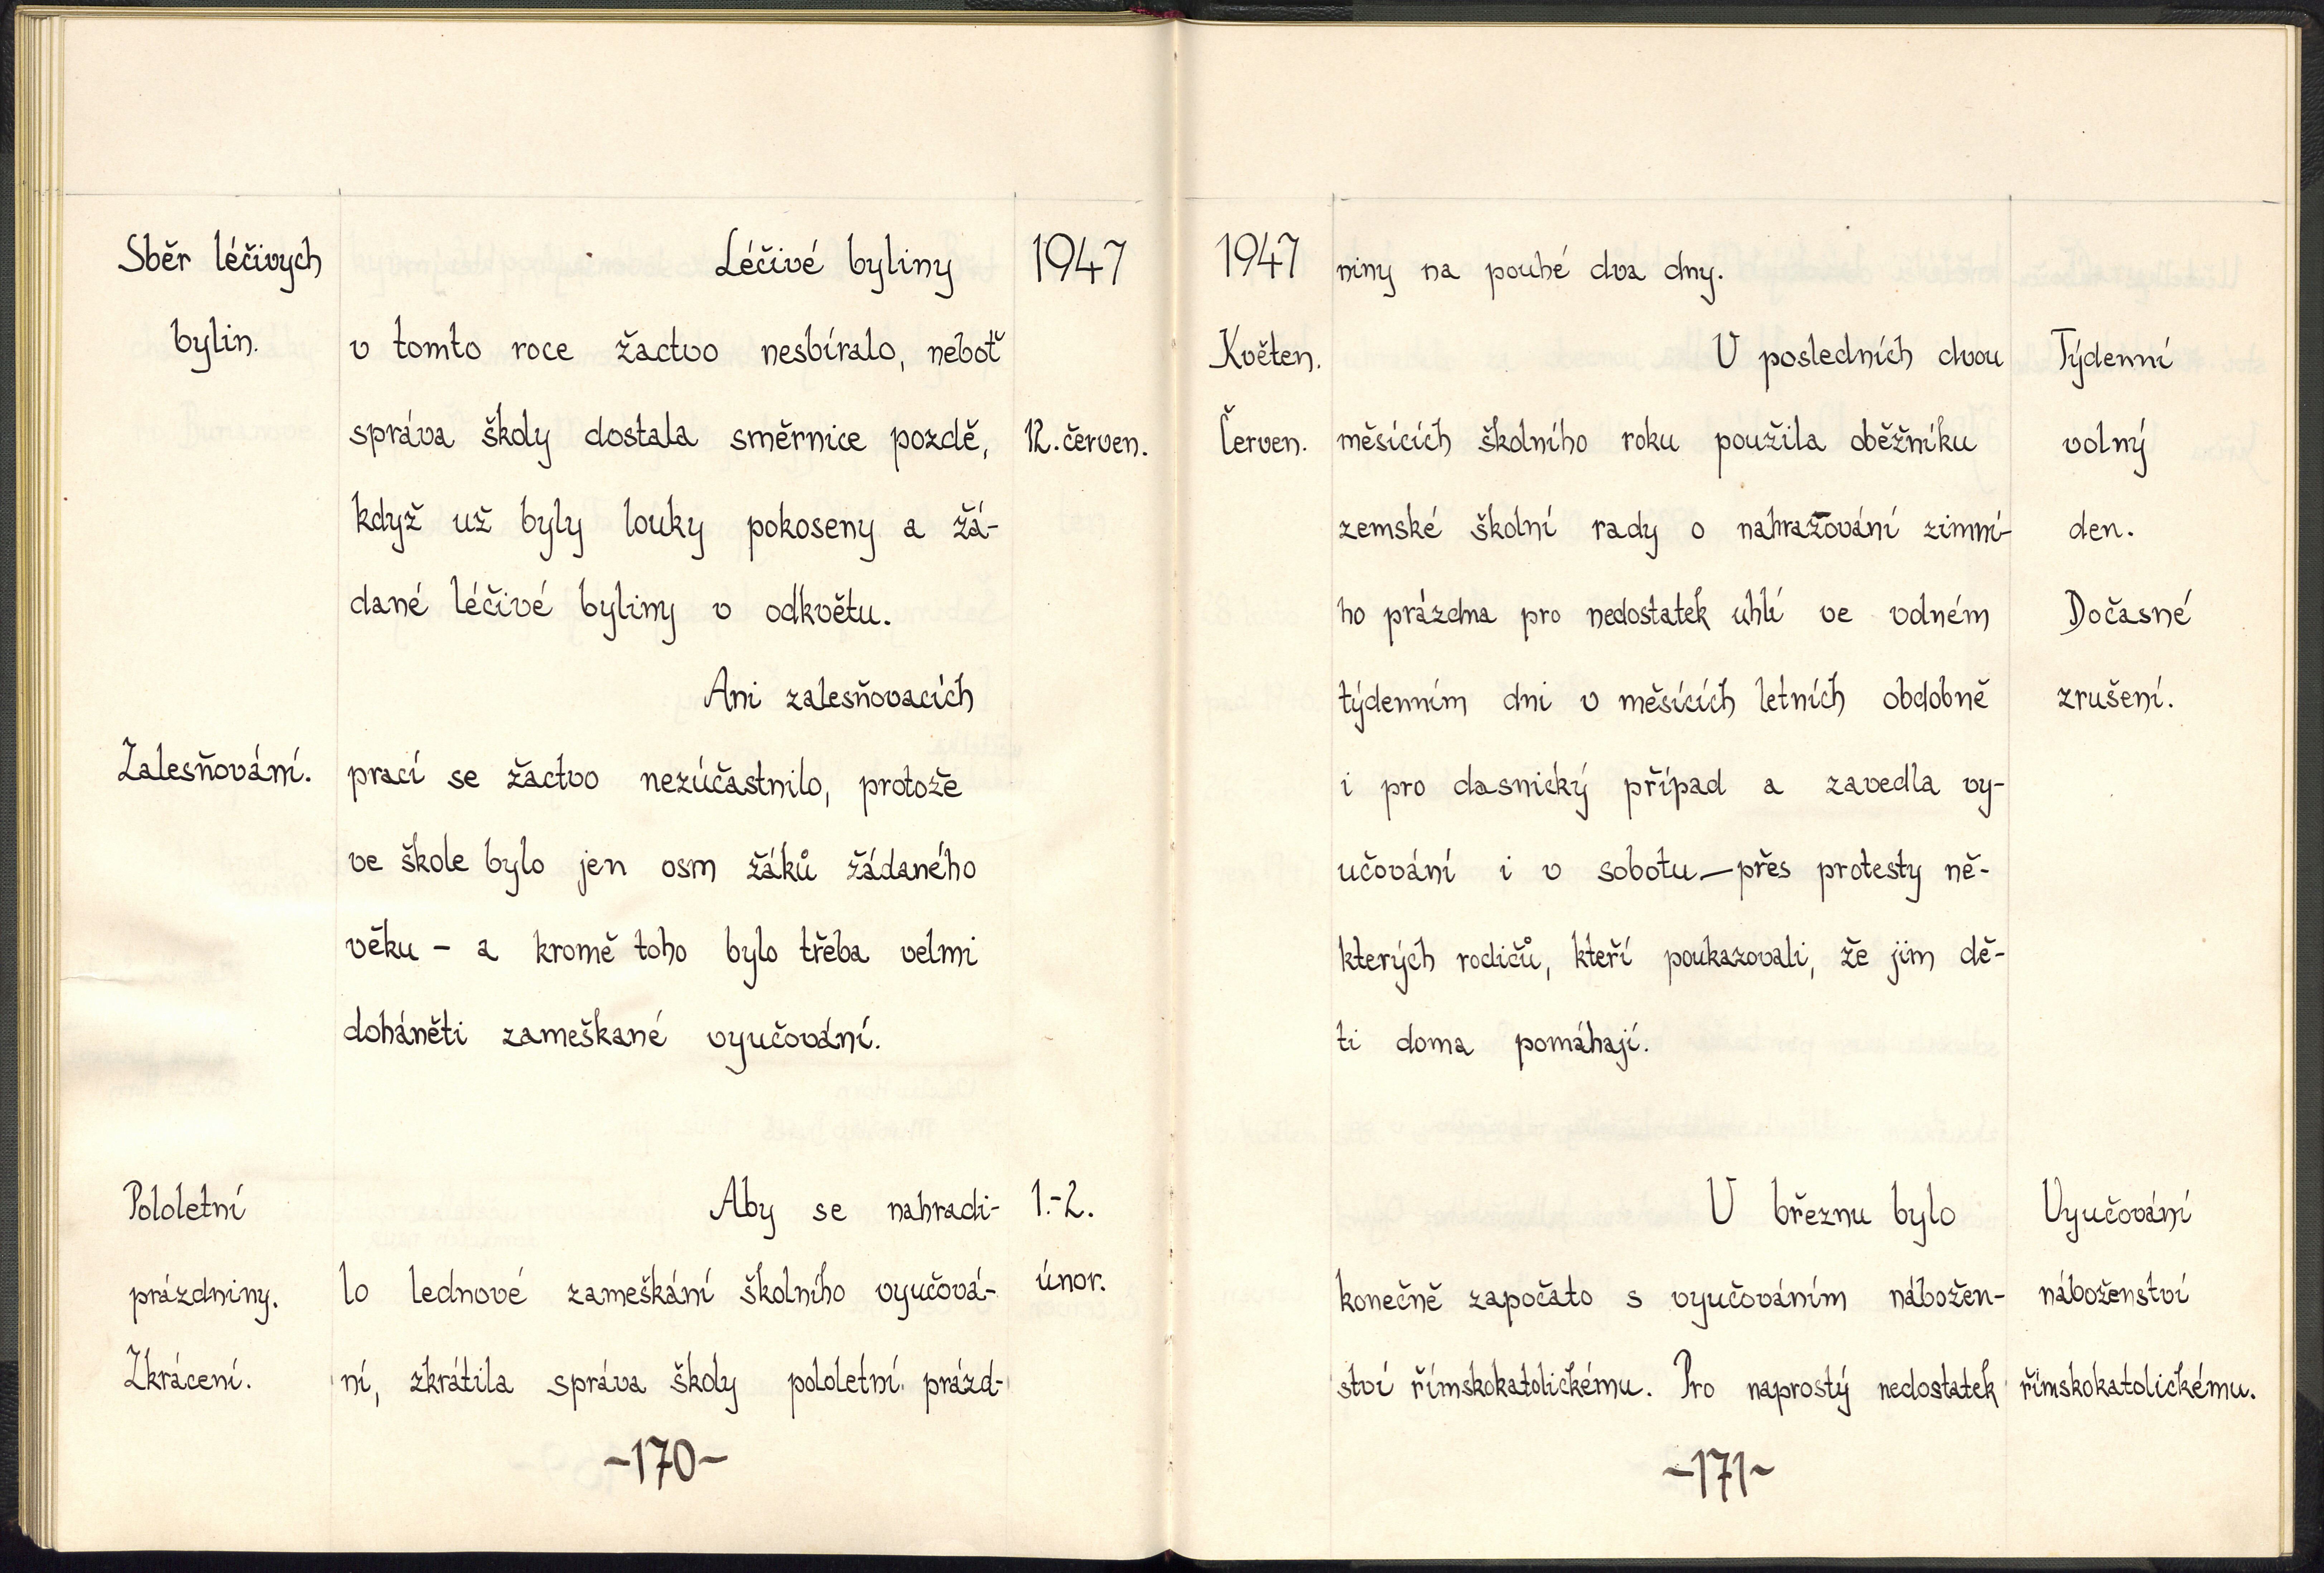 Sběr léčivých
bylin.
Léčivé byliny
v tomto roce žactvo nesbíralo, neboť
správa školy dostala směrnice pozdě,
když už byly louky pokoseny a žá-
dané léčivé byliny v odkvětu.
1947
12. červen.
Ani zalesňovacích
Zalesňování.
prací se žactvo nezúčastnilo, protože
ve škole bylo jen osm žáků žádaného
věku - a kromě toho bylo třeba velmi
doháněti zameškané vyučování.
Pololetní
prázdniny.
Zkrácení.
Aby se nahradi-
lo lednové zameškání školního vyučová-
ní, zkrátila správa školy pololetní prázd-
1.-2.
únor.
~170~
1947
niny na pouhé dva dny.
Květen.
Červen.
V posledních dvou
měsících školního roku použila oběžníku
zemské školní rady o nahražování zimní-
ho prázdna pro nedostatek uhlí ve volném
týdenním dni v měsících letních obdobně
i pro dasnický případ a zavedla vy-
učování i v sobotu — přes protesty ně-
kterých rodičů, kteří poukazovali, že jim dě-
ti doma pomáhají.
Týdenní
volný
den.
Dočasné
zrušení.
V březnu bylo
konečně započato s vyučováním nábožen-
ství římskokatolickému. Pro naprostý nedostatek
Vyučování
náboženství
římskokatolickému.
~171~